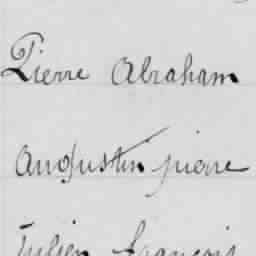 Pierre Abraham
Augustin pierre
Julien françois